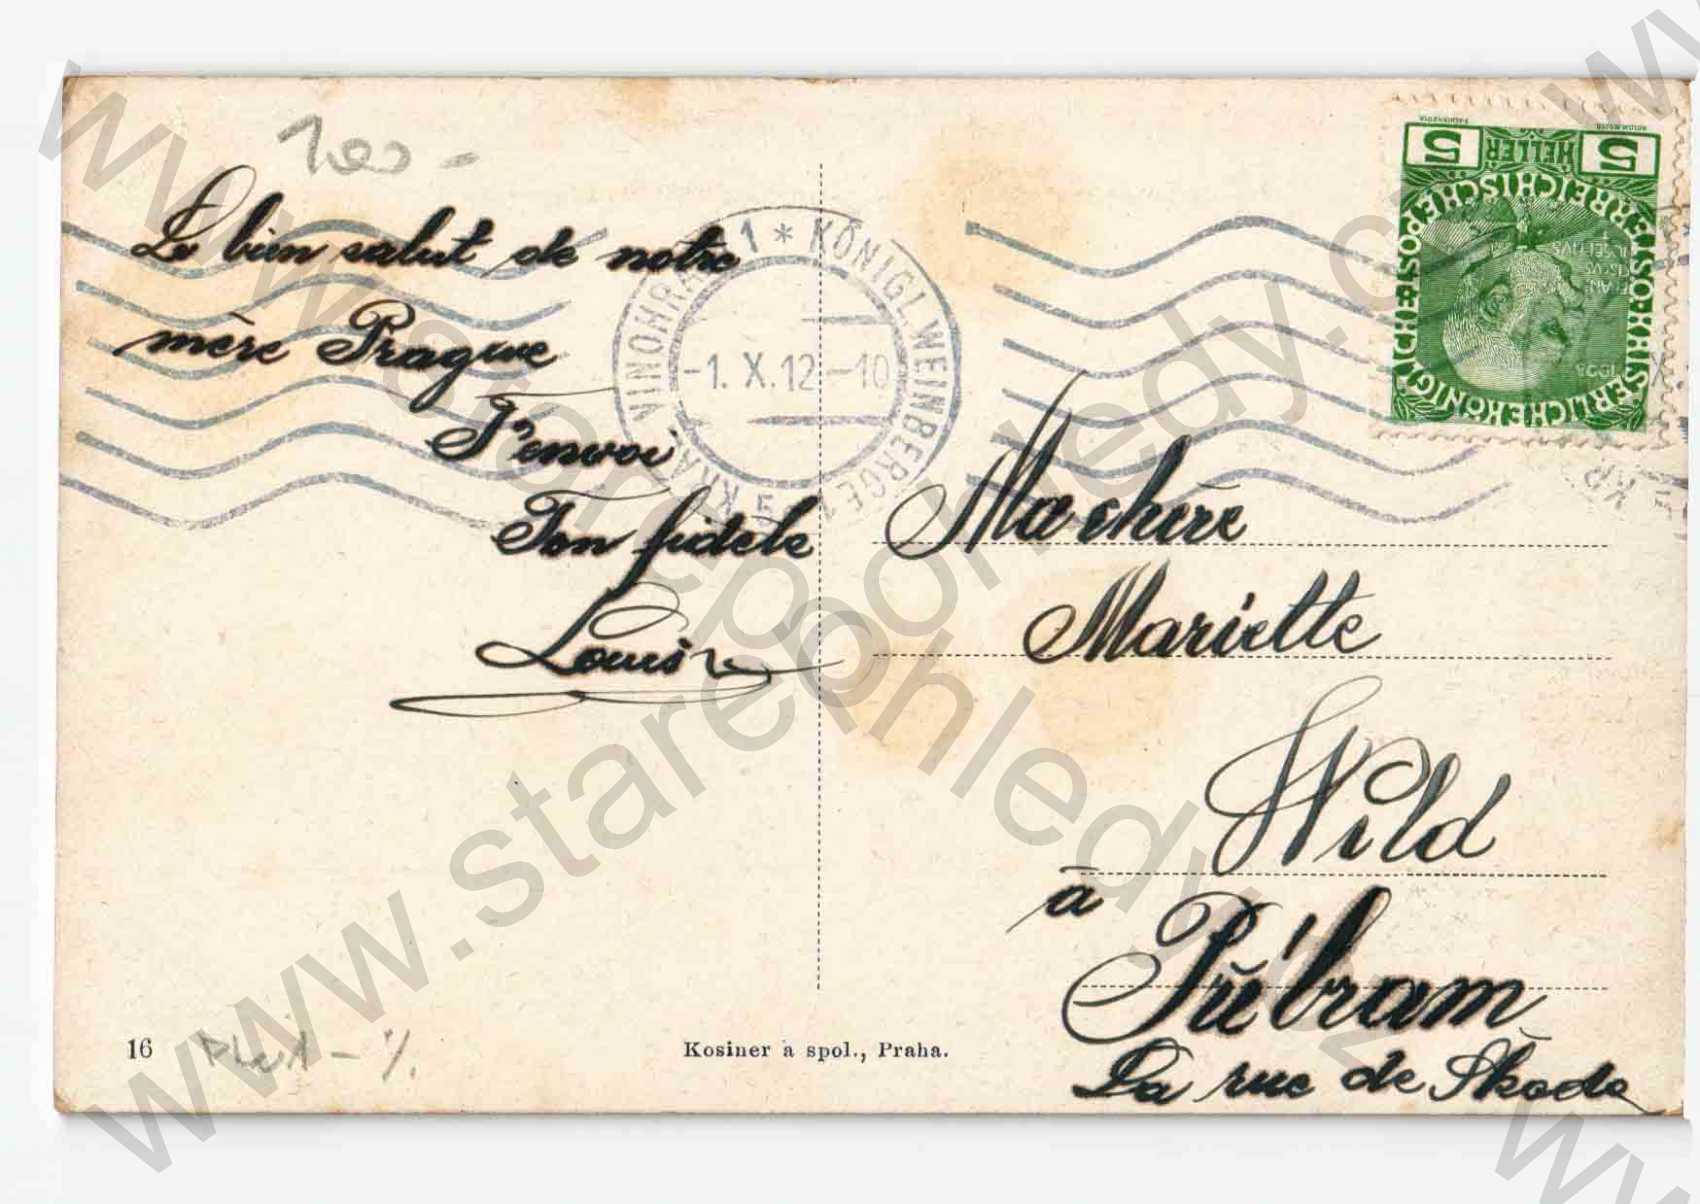 100 -
Le bien salut de notre
mère Prague
J'envoi
Ton fidele
Louis
1 * KÖNIGL. WEINBERGE 1
VINOHRADY
5 KRÁL.
-1. X. 12 -10
5 HELLER 5
KAISERLICHE KÖNIGLICHE ÖSTERREICHISCHE POST
1908
Ma chère
Mariette
Wild
à
Příbram
La rue de Škoda
16
Kosiner a spol., Praha.
www.starepohledy.cz